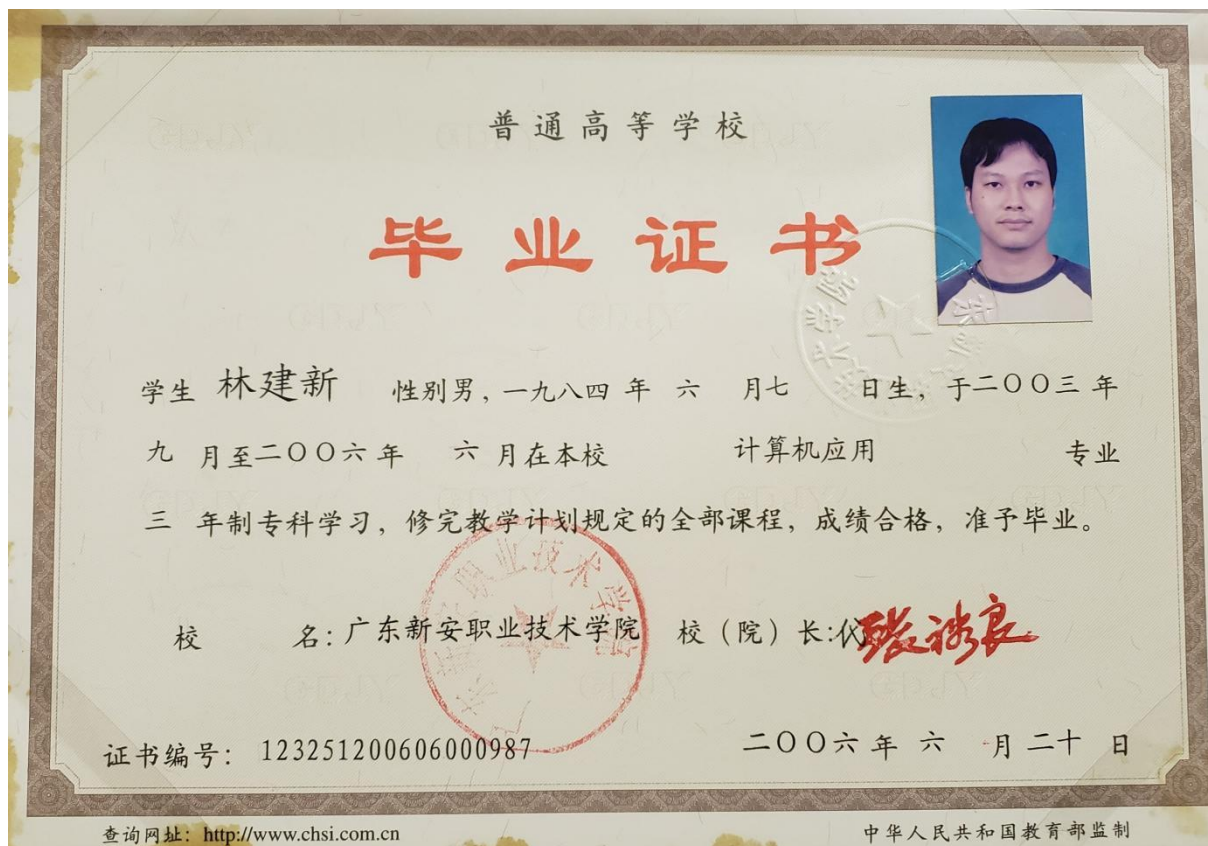 普通高等学校
毕业证书
学生 林建新 性别男，一九八四 年 六 月七 日生，于二〇〇三 年
九 月至二〇〇六年 六 月在本校 计算机应用 专业
三 年制专科学习，修完教学计划规定的全部课程，成绩合格，准予毕业。
校 名：广东新安职业技术学院 校（院）长：代
广东新安职业技术学院
证书编号：123251200606000987 二〇〇六 年 六 月 二十 日
查询网址：http://www.chsi.com.cn 中华人民共和国教育部监制